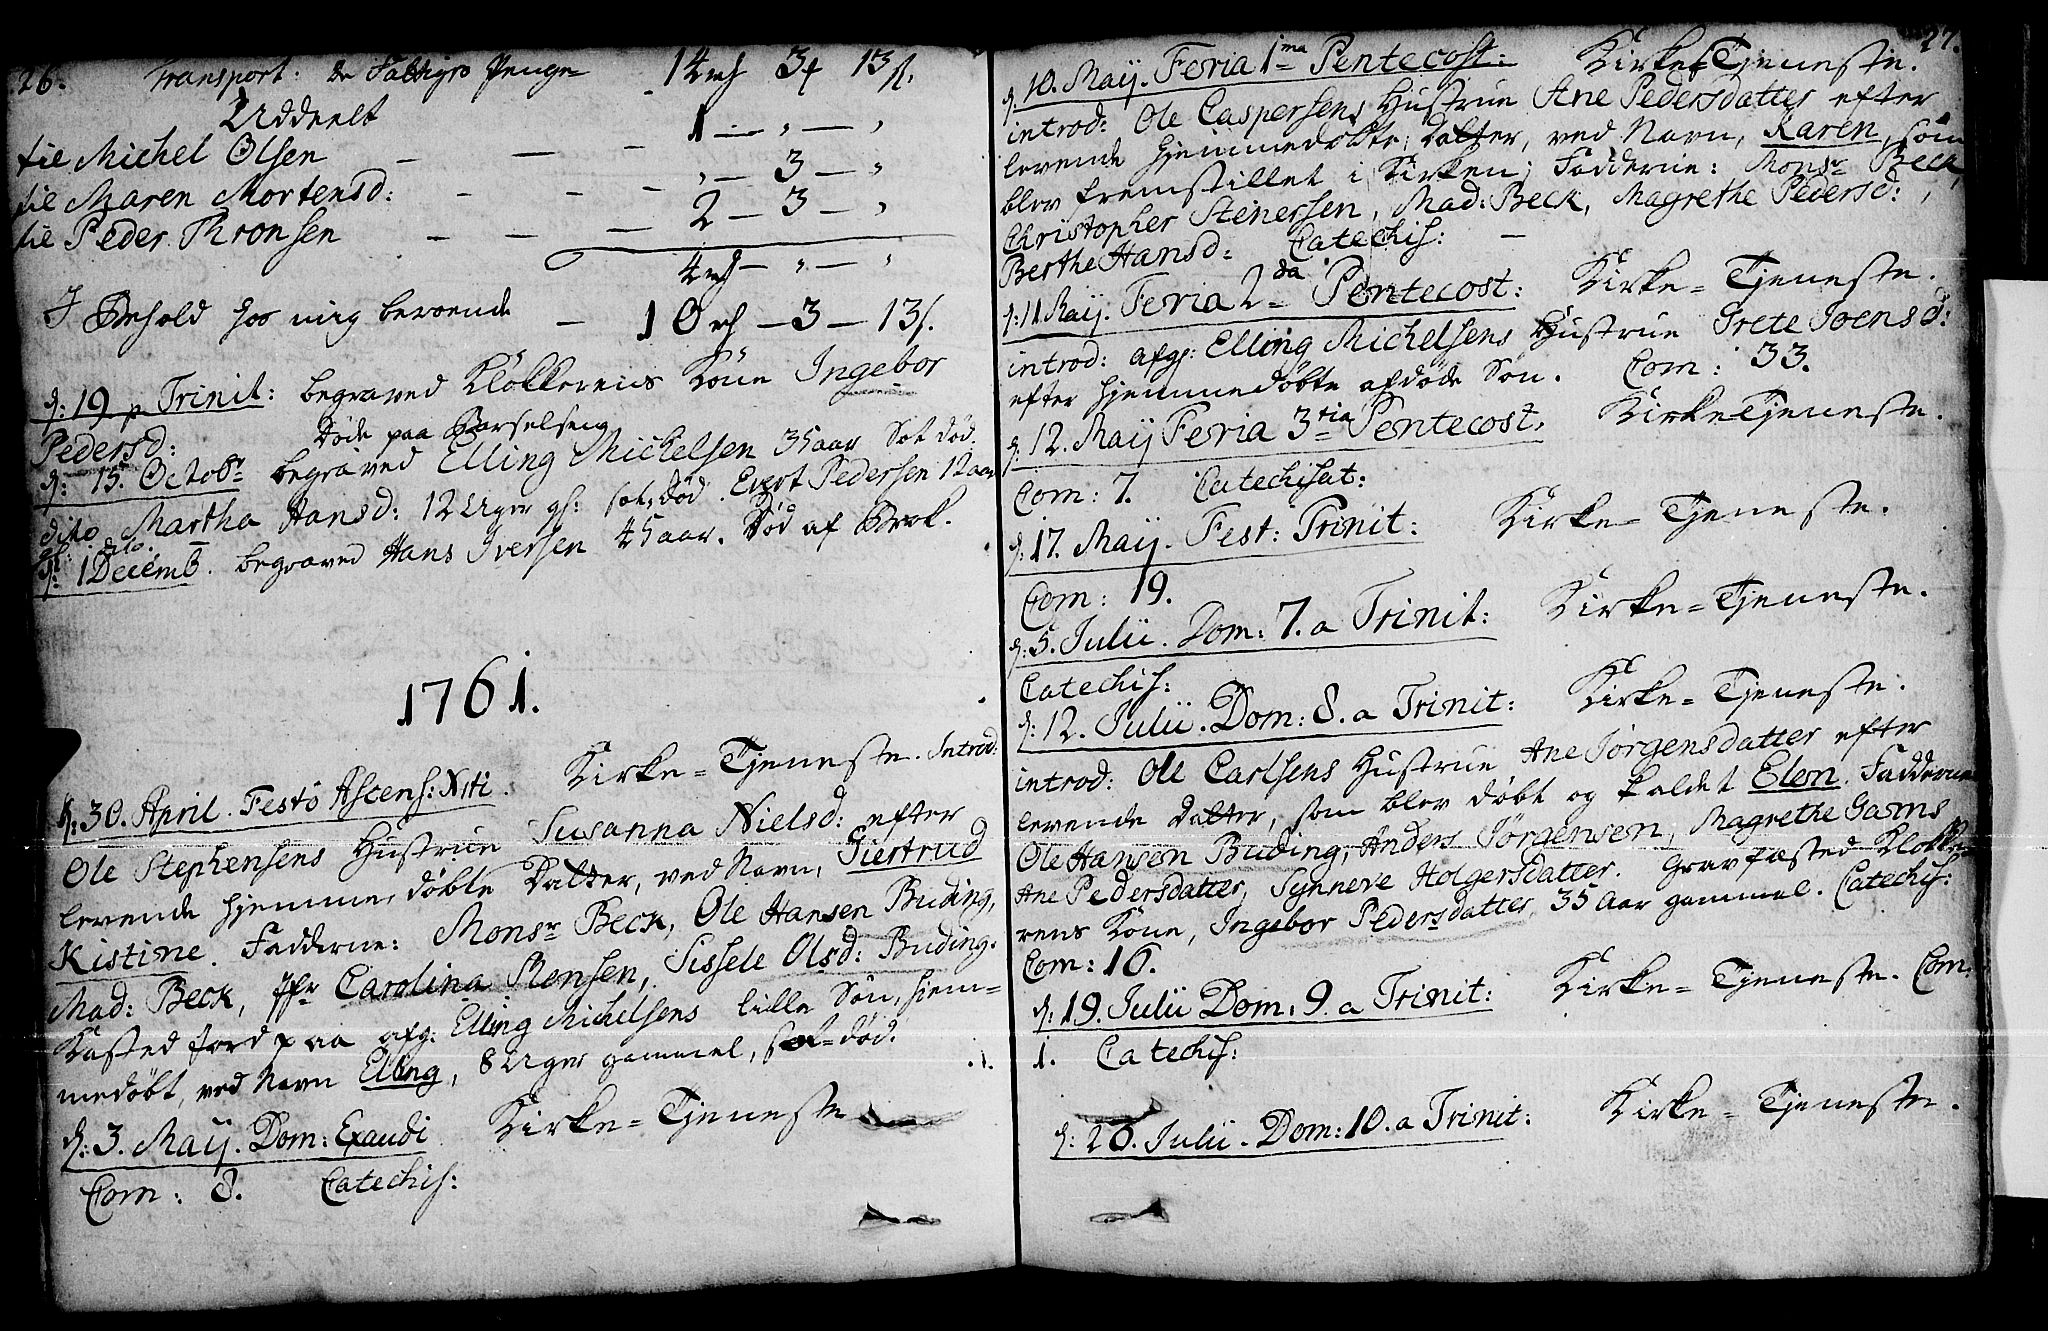 26. Transport: de Fattigis Penge 14 rd 3 13 s.
Uddeelt
til Michel Olsen — — — 1 — „ — „
til Maren Mortensd: — — — „ — 3 — „
til Peder Thronsen — — — 2 — 3 — „
4 rd — „ — „
I Behold hos mig beroende — 10 rd — 3 — 13 s.
d: 19 p Trinit: begraved Klokkerens Kone Ingebor
Pedersd: Døde paa Barselseng
d: 15. Octobr begraved Elling Michelsen 35 aar Sot død.
dito Martha Hansd: 12 Uger gl: sot, død. Evert Pedersen 12 aar
gl: dito.
d: 1 Decemb. begraved Hans Iversen 45 aar. Død af Brok.
1761.
d: 30. April. Festo Ascens: Xsti. Kirke=Tjeneste. Introd:
Ole Stephensens Hustrue Susanna Nielsd: efter
levende hjemme, døbte Datter, ved Navn, Giertrud
Kistine. Fadderne: Monsr Beck, Ole Hansen Buding,
Mad: Beck, Jfr Carolina Stensen, Sissele Olsd: Buding.
Kasted Jord paa afg: Elling Michelsens lille Søn, hiem=
medøbt, ved Navn Elling, 8 Uger gammel, sot=død.
d: 3. Maij. Dom: Exaudi Kirke=Tjeneste
Com: 8. Catechis:
27.
d: 10. Maij. Feria 1ma Pentecost: Kirke Tjeneste.
introd: Ole Caspersens Hustrue Ane Pedersdatter efter
levende hjemmedøbte, Datter, ved Navn, Karen, som
blev fremstillet i Kirken; Fadderne: Monsr Beck,
Christopher Steinersen, Mad: Beck, Magrethe Pedersd:,
Berthe Hansd: Catechis: —
d: 11 Maij. Feria 2da Pentecost: Kirke=Tjeneste.
introd: afg: Elling Michelsens Hustrue Grete Joensd:
efter hjemmedøbte afdøde Søn. Com: 33.
d: 12. Maij Feria 3tia Pentecost. Kirke Tjeneste.
Com: 7. Catechisat:
d: 17. Maij. Fest: Trinit: Kirke=Tjeneste.
Com: 19.
d: 5. Julii. Dom: 7. a Trinit: Kirke=Tjeneste.
Catechis:
d: 12. Julii. Dom: 8. a Trinit: Kirke=Tjeneste.
introd: Ole Carlsens Hustrue Ane Jørgensdatter efter
levende Datter, som blev døbt og kaldet Elen. Fadderne
Ole Hansen Buding, Anders Jørgensen, Magrethe Garns
Ane Pedersdatter, Synneve Holgersdatter. Gravfæsted Klokke=
rens Kone, Ingebor Pedersdatter, 35 Aar gammel. Catechis:
Com: 16.
d: 19. Julii Dom: 9. a Trinit: Kirke=Tjeneste. Com:
1. Catechis:
d: 26. Julii. Dom: 10. a Trinit: Kirke=Tjeneste.